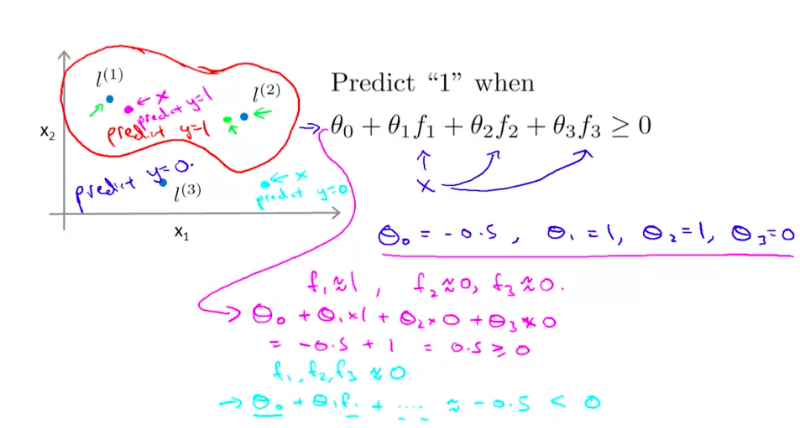 l⁽¹⁾
l⁽²⁾
← x
predict y=1
predict y=1
x₂
predict y=0.
l⁽³⁾
← x
predict y=0
x₁
Predict “1” when
→ θ₀ + θ₁f₁ + θ₂f₂ + θ₃f₃ ≥ 0
x
θ₀ = -0.5 , θ₁ = 1, θ₂ = 1, θ₃ = 0
f₁ ≈ 1 , f₂ ≈ 0, f₃ ≈ 0.
→ θ₀ + θ₁×1 + θ₂×0 + θ₃×0
= -0.5 + 1 = 0.5 ≥ 0
f₁, f₂, f₃ ≈ 0
→ θ₀ + θ₁f₁ + .... ≈ -0.5 < 0